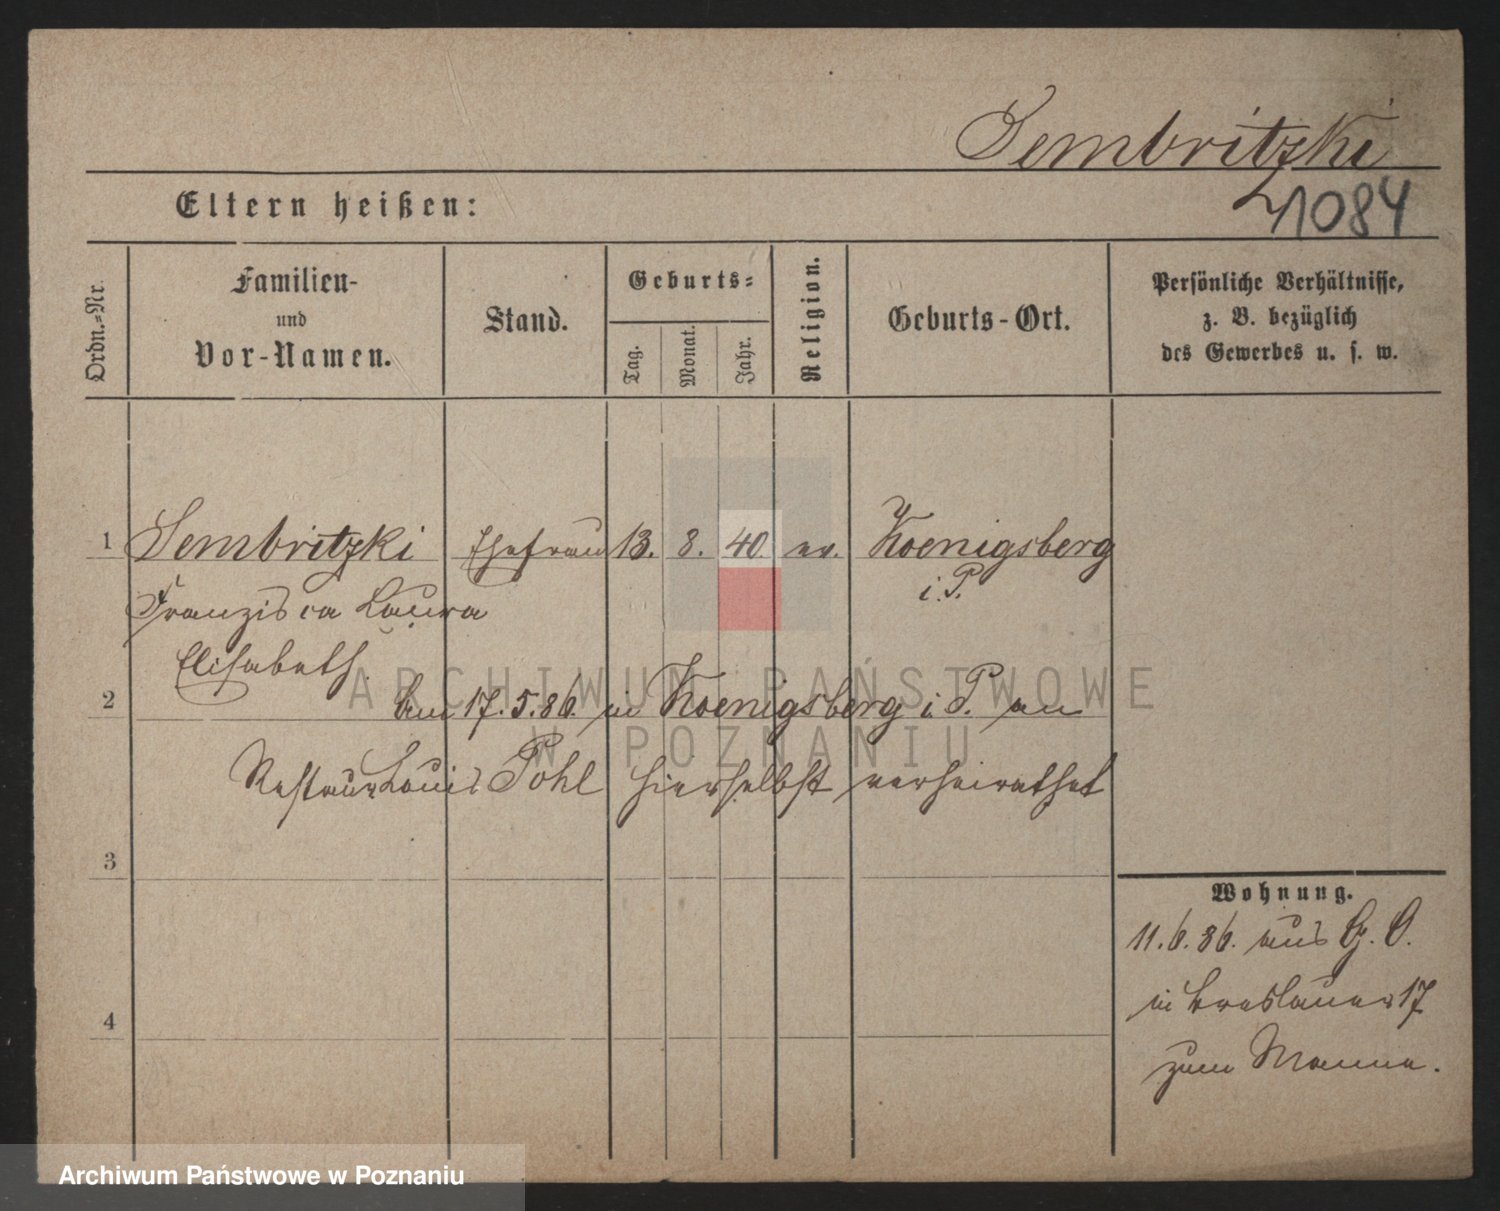 Sembritzki
1084
Eltern heißen:
Ordn.-Nr.
Familien-
und
Vor-Namen.
Stand.
Geburts-
Tag.
Monat.
Jahr.
Religion.
Geburts-Ort.
Persönliche Verhältnisse,
z. B. bezüglich
des Gewerbes u. s. w.
1 Sembritzki Ehefrau 13. 8. 40. ev. Koenigsberg
i. P.
Franzisca Laura
Elisabeth
ARCHIWUM PAŃSTWOWE
W POZNANIU
2 Am 17.5.86. in Koenigsberg i. P. an
Restaur Louis Pohl hierselbst verheirathet
3
Wohnung.
11.6.86. aus G. O.
in Breslauer 17
zum Manne.
4
Archiwum Państwowe w Poznaniu